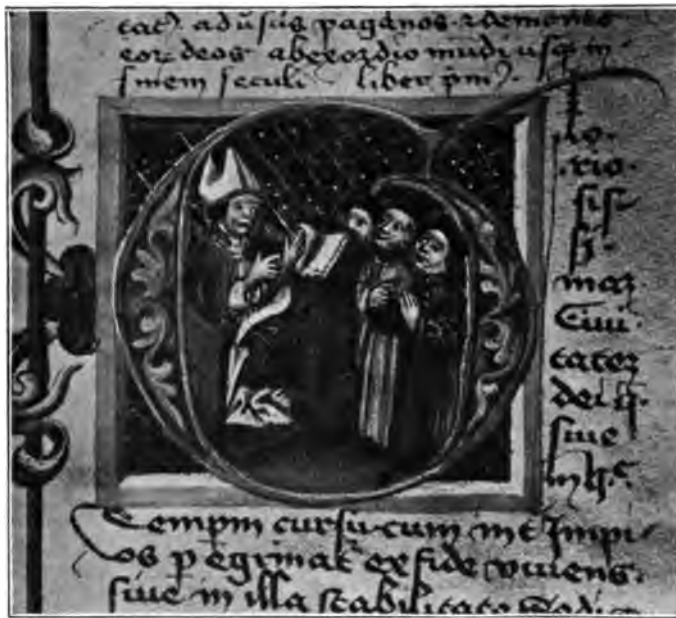 aduſus paganos · ⁊ demones
eor deos abexordio mudi uſq in
finem seculi · liber pm̄⁹
lo·
rio·
ſiſ-
ſi-
maz
Ciui-
tatez
dei q̄·
ſiue
in h.c
Tempm curſu · cum int Impi-
os p egrinat ex fide viuens ·
ſiue in illa stabilitate